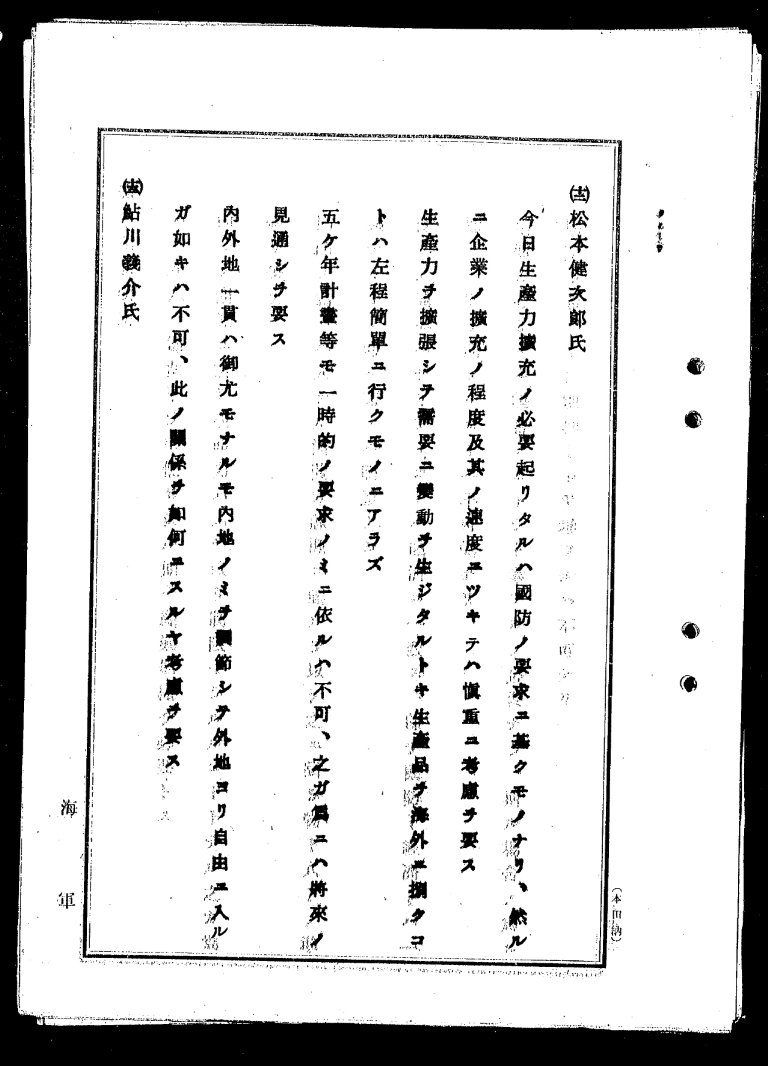 ㈪松本健次郎氏
今日生產力擴充ノ必要起リタルハ國防ノ要求ニ基クモノナリ、然ル
ニ企業ノ擴充ノ程度及其ノ速度ニツキテハ愼重ニ考慮ヲ要ス
生產力ヲ擴張シテ需要ニ變動ヲ生ジタルトキ生產品ヲ海外ニ捌クコ
トハ左程簡單ニ行クモノニアラズ
五ケ年計畫等モ一時的ノ要求ノミニ依ルハ不可、之ガ爲ニハ將來ノ
見通シヲ要ス
內外地一貫ハ御尤モナルモ內地ノミヲ調節シテ外地ヨリ自由ニ入ル
ガ如キハ不可、此ノ關係ヲ如何ニスルヤ考慮ヲ要ス
鮎川義介氏
海軍
(本田納)